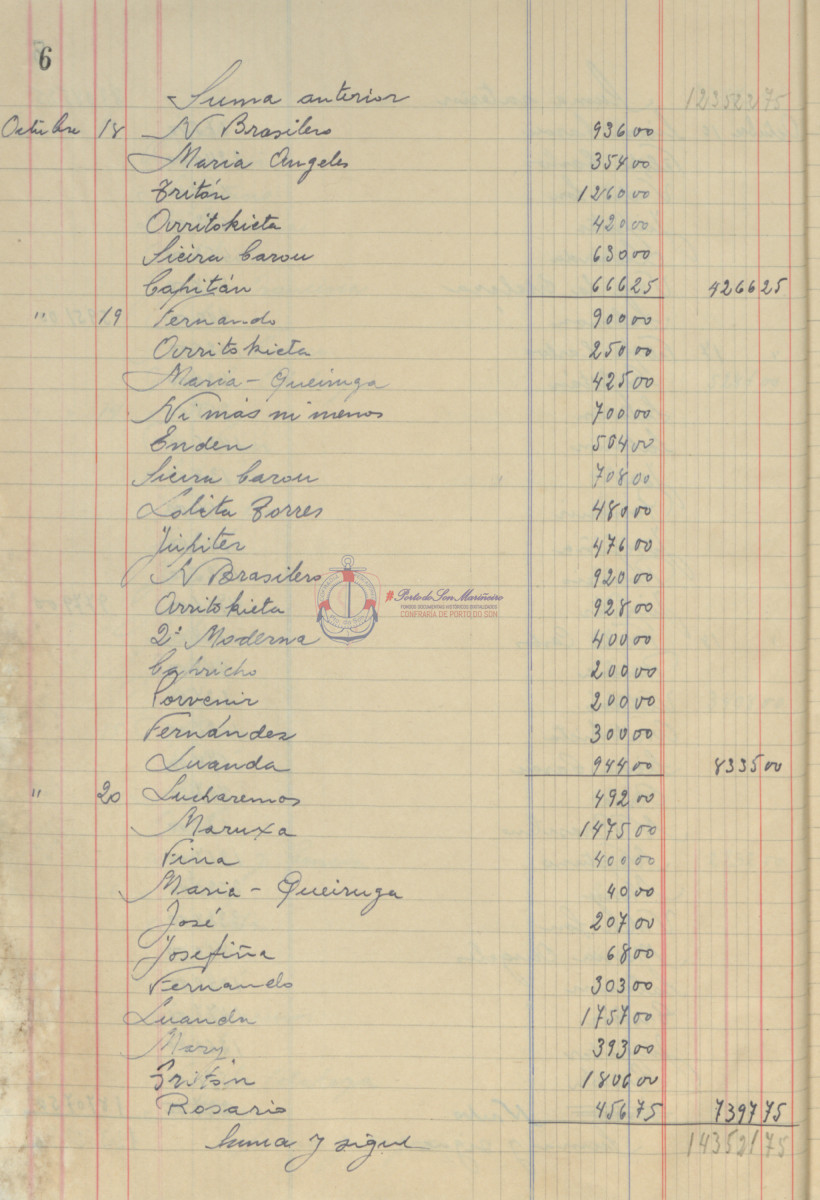 6
Suma anterior 123522 75
Octubre 18 N Brasilero 936 00
Maria Angeles 354 00
Tritón 1260 00
Arritokieta 420 00
Sieira Carou 630 00
Capitán 666 25 4266 25
" 19 Fernando 900 00
Arritokieta 250 00
Maria-Queiruga 425 00
Ni más ni menos 700 00
Enden 504 00
Sieira Carou 708 00
Lolita Torres 480 00
Júpiter 476 00
N Brasilero 920 00
Arritokieta 928 00
2ª Moderna 400 00
Capricho 200 00
Porvenir 200 00
Fernández 300 00
Luanda 944 00 8335 00
" 20 Lucharemos 492 00
Maruxa 1475 00
Fina 400 00
Maria-Queiruga 40 00
José 207 00
Josefiña 68 00
Fernando 303 00
Luanda 1757 00
Mary 393 00
Tritón 1806 00
Rosario 456 75 7397 75
Suma y sigue 143521 75
#Porto do Son Mariñeiro
FUNDOS DOCUMENTAIS HISTÓRICOS DIXITALIZADOS
CONFRARÍA DE PORTO DO SON